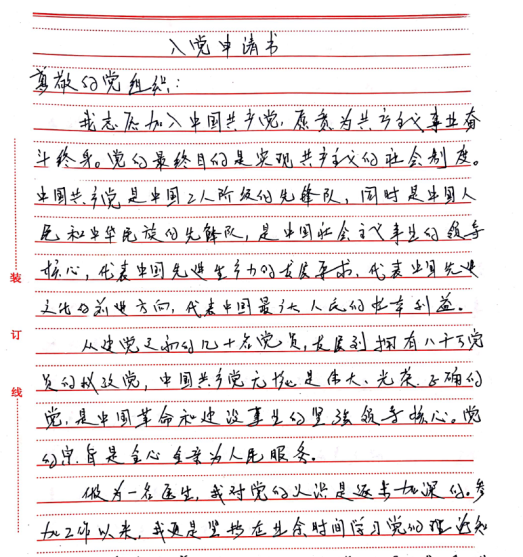 入党申请书
尊敬的党组织：
我志愿加入中国共产党，愿意为共产主义事业奋
斗终身。党的最终目的是实现共产主义的社会制度。
中国共产党是中国工人阶级的先锋队，同时是中国人
民和中华民族的先锋队，是中国社会主义事业的领导
核心，代表中国先进生产力的发展要求，代表中国先进
文化的前进方向，代表中国最广大人民的根本利益。
从建党之初的几十名党员，发展到拥有八千万党
员的执政党，中国共产党无愧是伟大、光荣、正确的
党，是中国革命和建设事业的坚强领导核心。党
的宗旨是全心全意为人民服务。
做为一名医生，我对党的认识是逐步加深的。参
加工作以来，我更是坚持在业余时间学习党的理论知
装
订
线